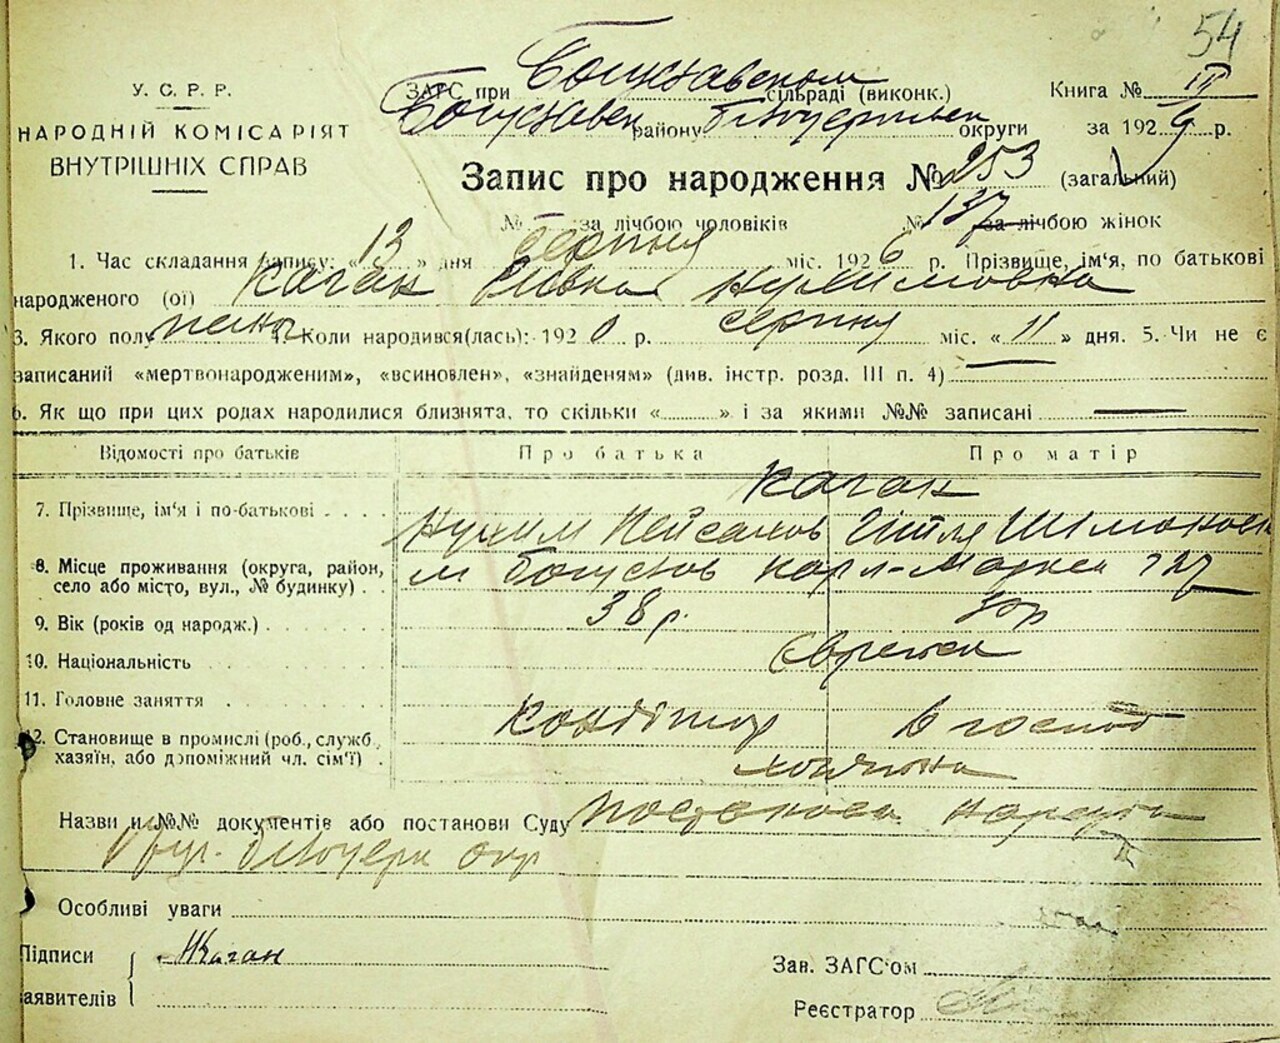 54
У. С. Р. Р.
НАРОДНІЙ КОМІСАРІЯТ
ВНУТРІШНІХ СПРАВ
ЗАГС при Богуславском сільраді (виконк.)
Книга № III
Богуславськ району Білоцерківськ округи
за 1926 р.
Запис про народження № 253 (загальний)
№ — за лічбою чоловіків № 137 за лічбою жінок
1. Час складання запису: « 13 » дня серпня міс. 1926 р. Прізвище, ім'я, по батькові
народженого (ої) Каган Ривка Нухимовна
3. Якого полу жіноч 4. Коли народився(лась): 1920 р. серпня міс. « 11 » дня. 5. Чи не є
записаний «мертвонародженим», «всиновлен», «знайденям» (див. інстр. розд. III п. 4)
6. Як що при цих родах народилися близнята, то скільки « » і за якими №№ записані —
Відомості про батьків Про батька Про матір
Каган
7. Прізвище, ім'я і по-батькові
Нухим Пейсахов Гітля Шімоновна
8. Місце проживання (округа, район,
село або місто, вул., № будинку)
м Богуслав Карл-Маркса 127
9. Вік (років од народж.) 38 р.
10. Національність Єврейськ
11. Головне заняття Кондітор В господ
12. Становище в промислі (роб., служб.,
хазяїн, або допоміжний чл. сім'ї)
Назви й №№ документів або постанови Суду Постанова Нарсуда
Білоцерк окр
Особливі уваги
Підписи
заявителів
НКаган
Зав. ЗАГС'ом
Реєстратор